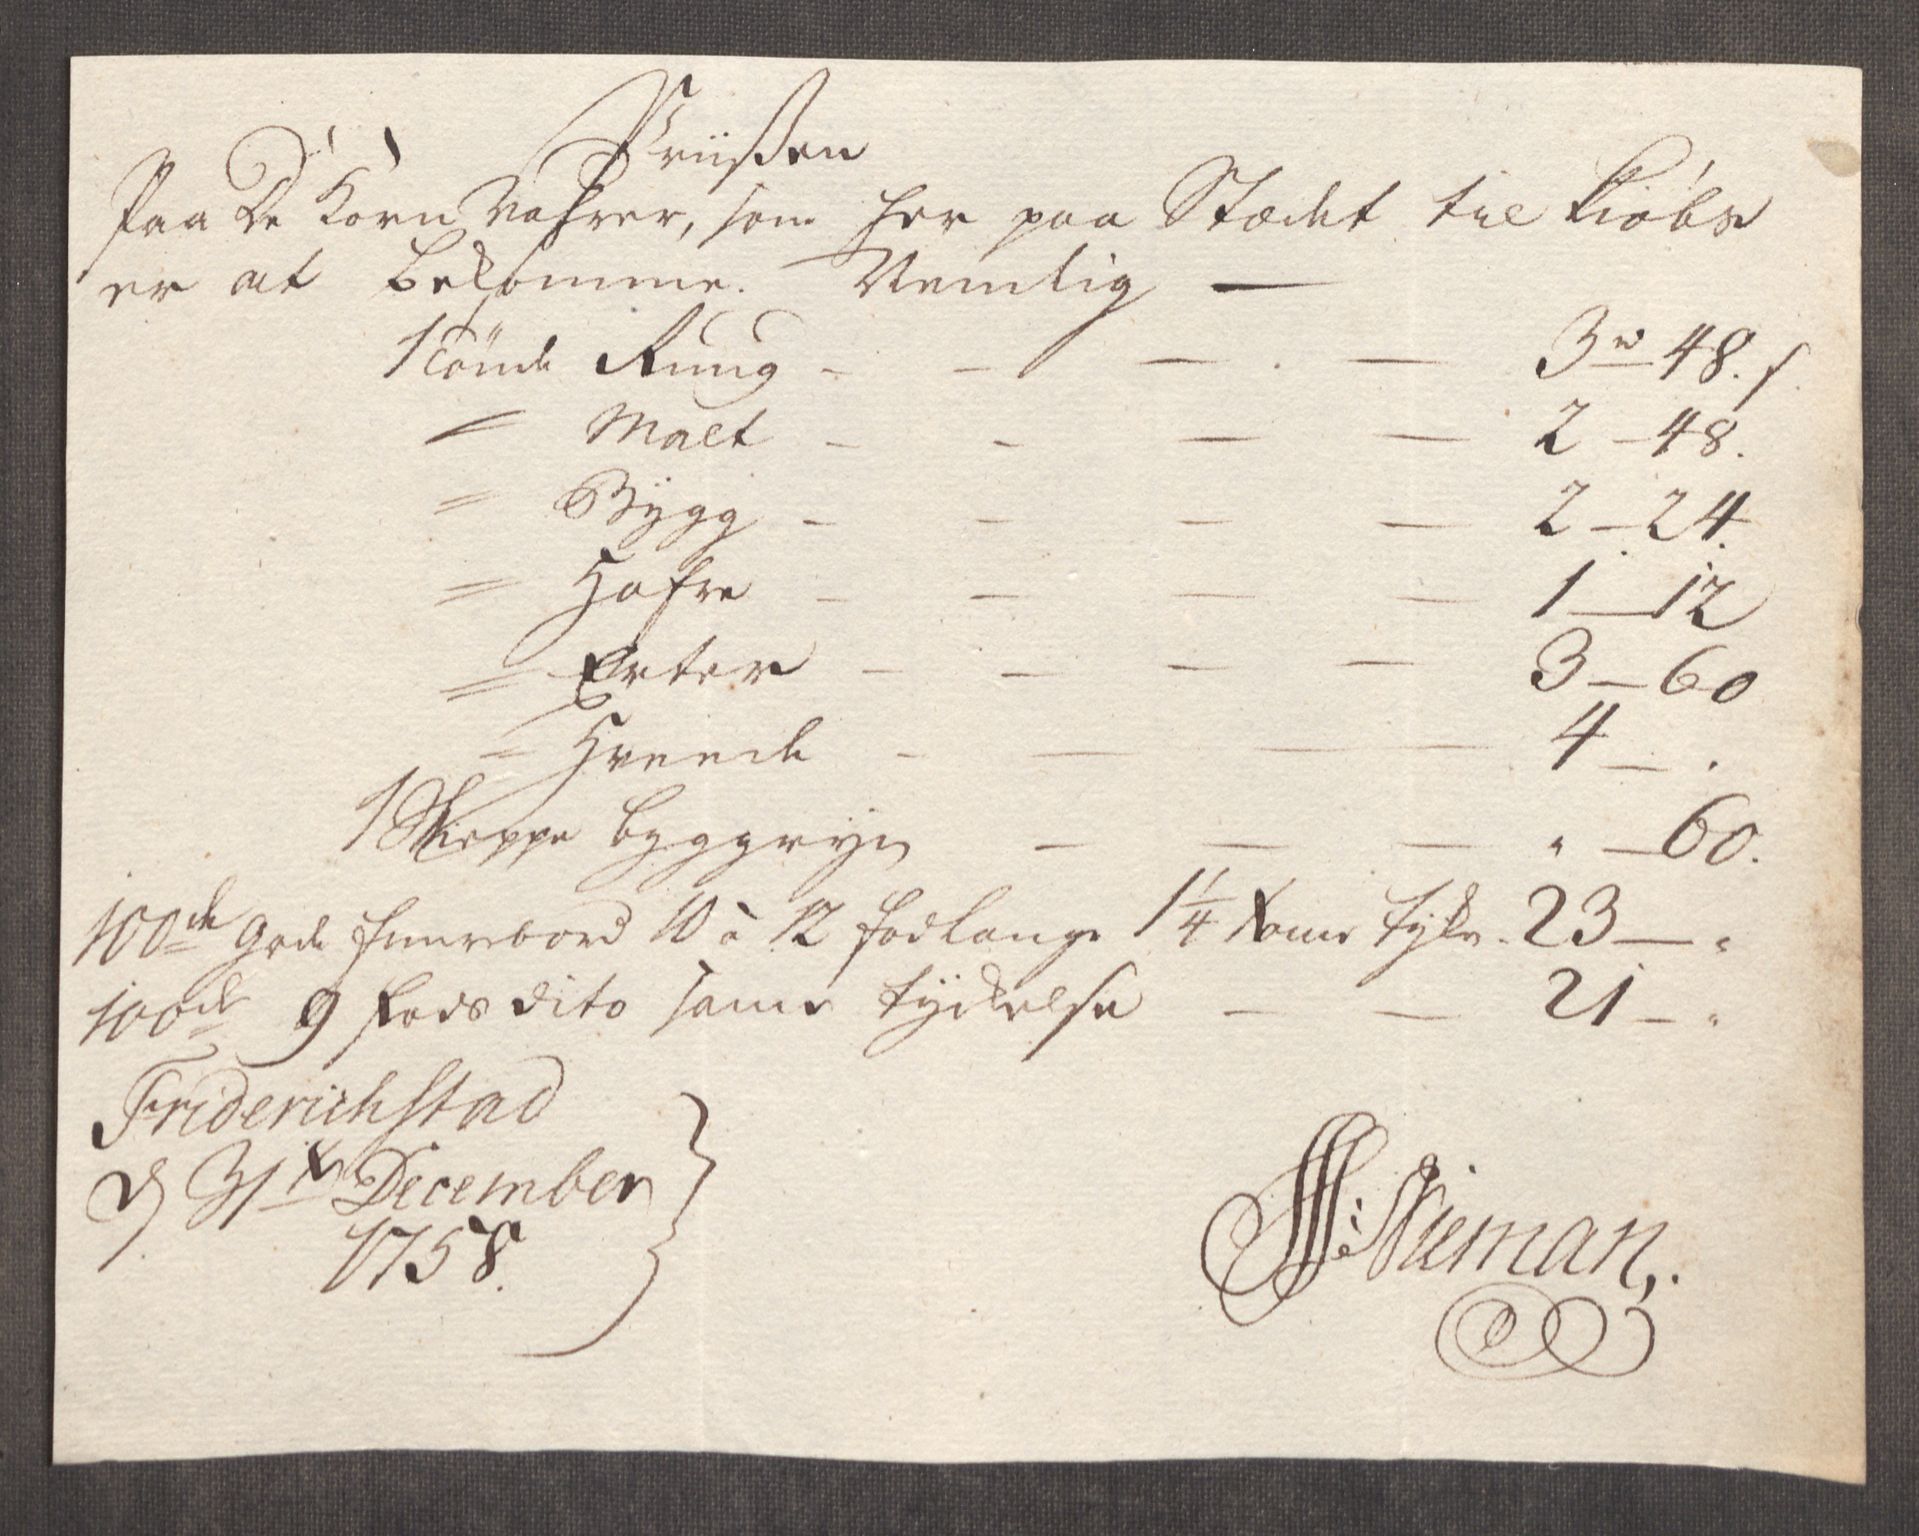 Priisen
Paa De Korn Vahrer, som her paa Stædet til kiøbs
er at bekomme. Nemlig —
1 Tønde Ruug - - — . — 3 rd 48. s.
" Malt - - — — 2 - 48.
" Bÿgg - - - — 2 - 24.
" Hafre - - - — 1 - 12
" Erter - - - — 3 - 60
" Hveede - — — — 4 - .
1 Skieppe byggryn - — — " - 60.
100de gode furrebord 10 à 12 fod lange 1 1/4 tome tyke - 23 - "
100de 9 fods dito same tÿckelse - — 21 - "
Friderichstad
d 31te December
1758.
Nieman